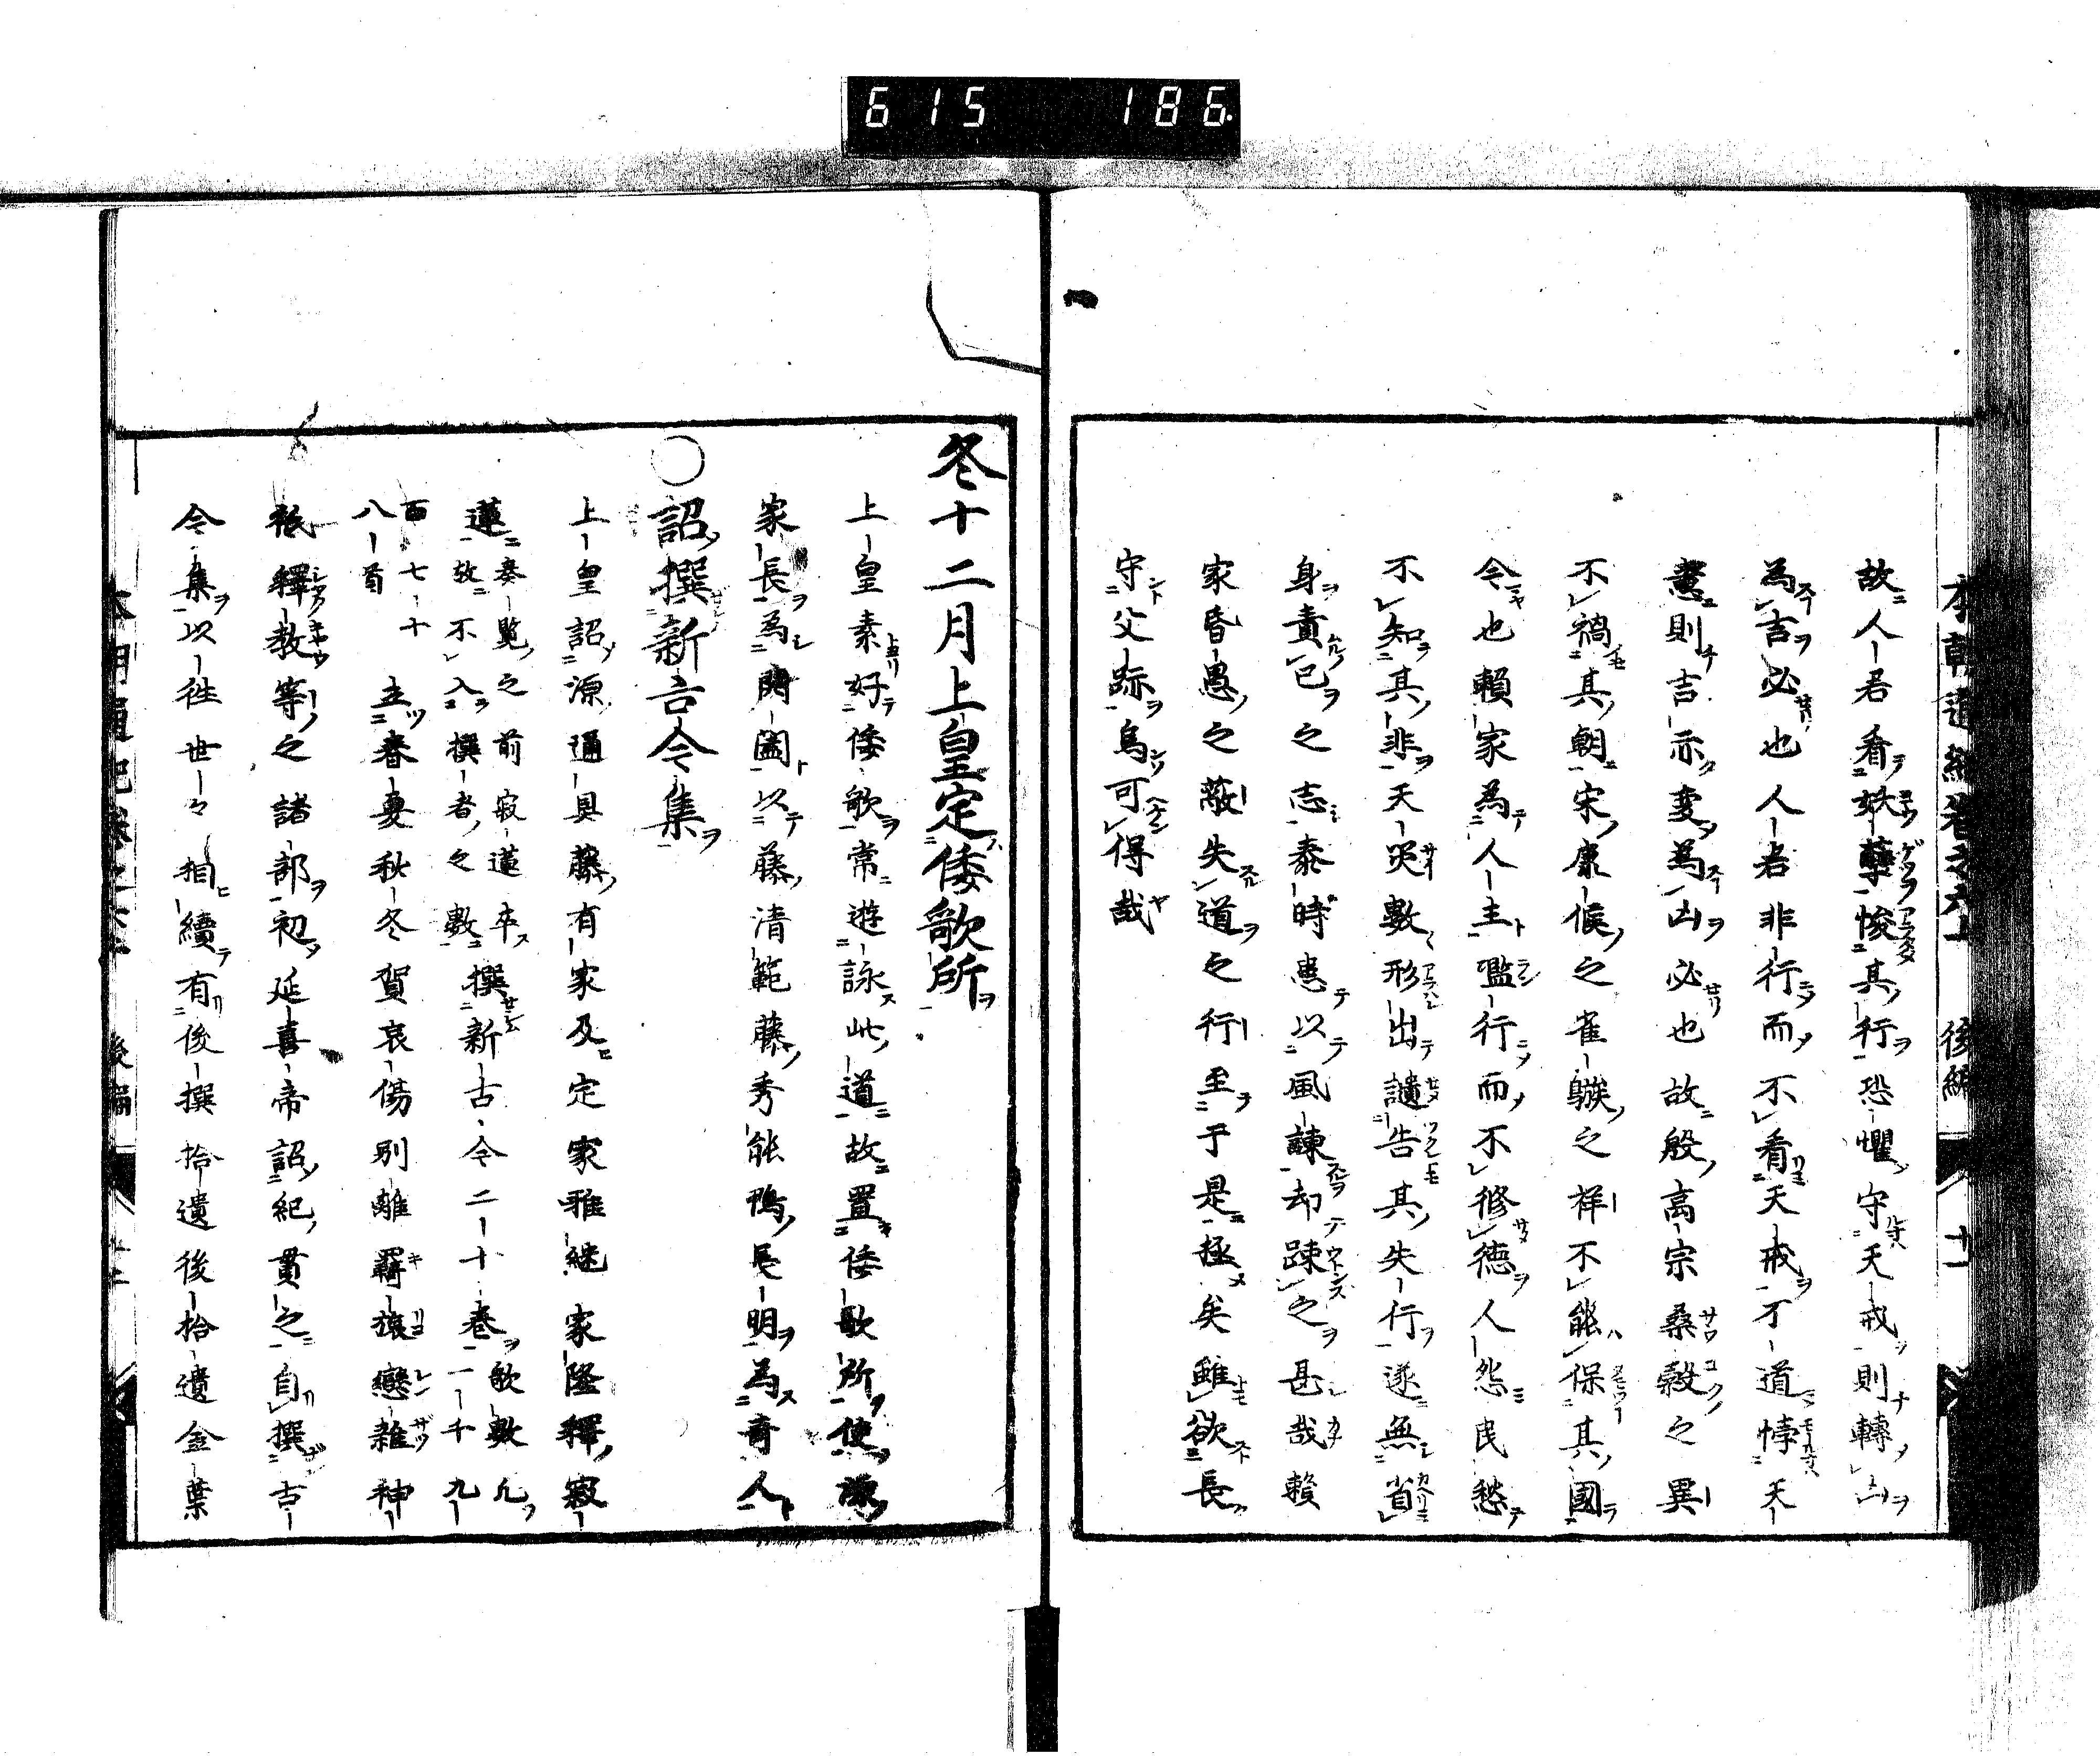 615 186
故人君看妖孽悛其行恐懼守天戒則轉凶
為吉必也人君非行而不看天戒才道悖天
意則吉示変為凶必也故殷高宗桑穀之異
不禍其朝宋康侯之雀鷇之祥不能保其國
令也賴家為人主濫行而不修德人怨民愁
不知其非天災數形出譴告其失行遂無省
身責已之志泰時患以風諫却踈之甚哉賴
家昏愚之蔽失道之行至于是極矣雖欲長
守父跡烏可得哉
冬十二月上皇定倭歌所
上皇素好倭歌常遊詠此道故置倭歌所使源
家長為開闔以藤清範藤秀能鴨長明為寄人
○詔撰新古今集
上皇詔源通具藤有家及定家雅継家隆釋寂
蓮奏覧之前寂蓮卒故不入撰者之數撰新古今二十巻歌數凡一千九
百七十八首立春夏秋冬賀哀傷別離羇旅戀雜神
祇釋教等之諸部初延喜帝詔紀貫之自撰古
今集以往世々相續有後撰拾遺後拾遺金葉